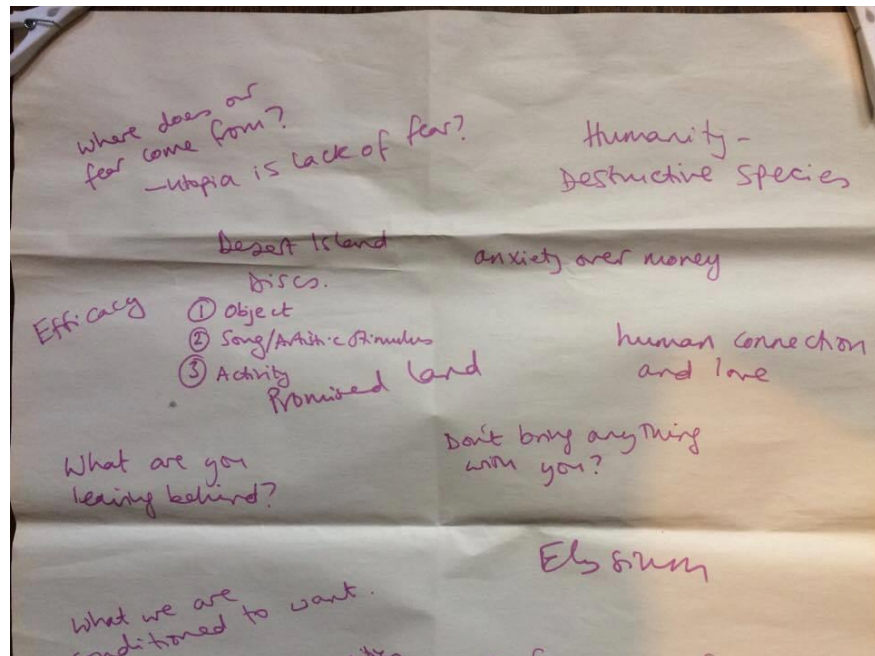 Where does our
fear come from?
-utopia is lack of fear?
Humanity -
Destructive Species
Desert Island
Discs.
① Object
② Song/Artistic Stimulus
③ Activity
Efficacy
Promised Land
anxiety over money
human connection
and love
What are you
leaving behind?
Don't bring anything
with you?
Elysium
What we are
conditioned to want.